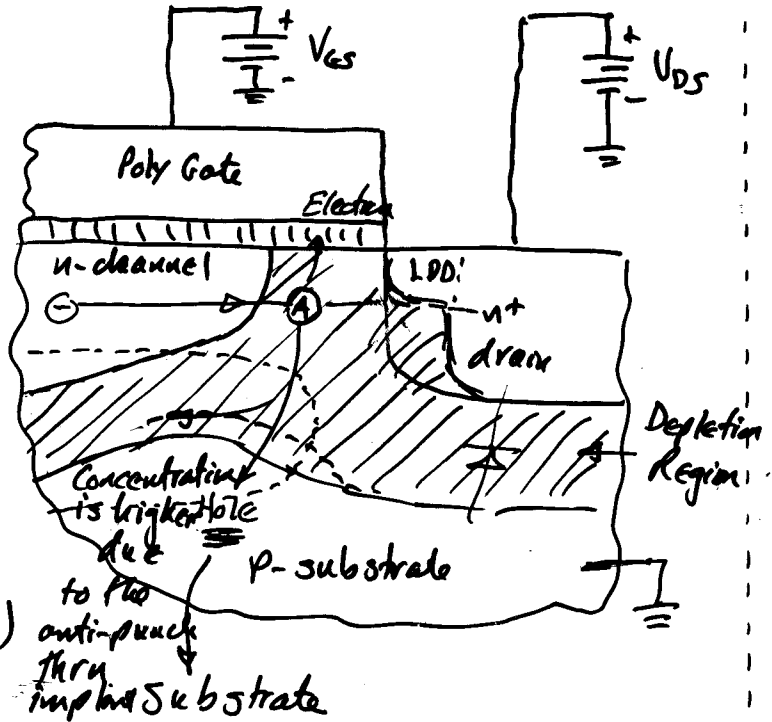 +
VGS
-
+
VDS
-
Poly Gate
Electron
n-channel
LDD
-
A
n+
drain
Depletion
Region
Concentration
is higher
Hole
due
to the
anti-punch
thru
implant
P-substrate
Substrate